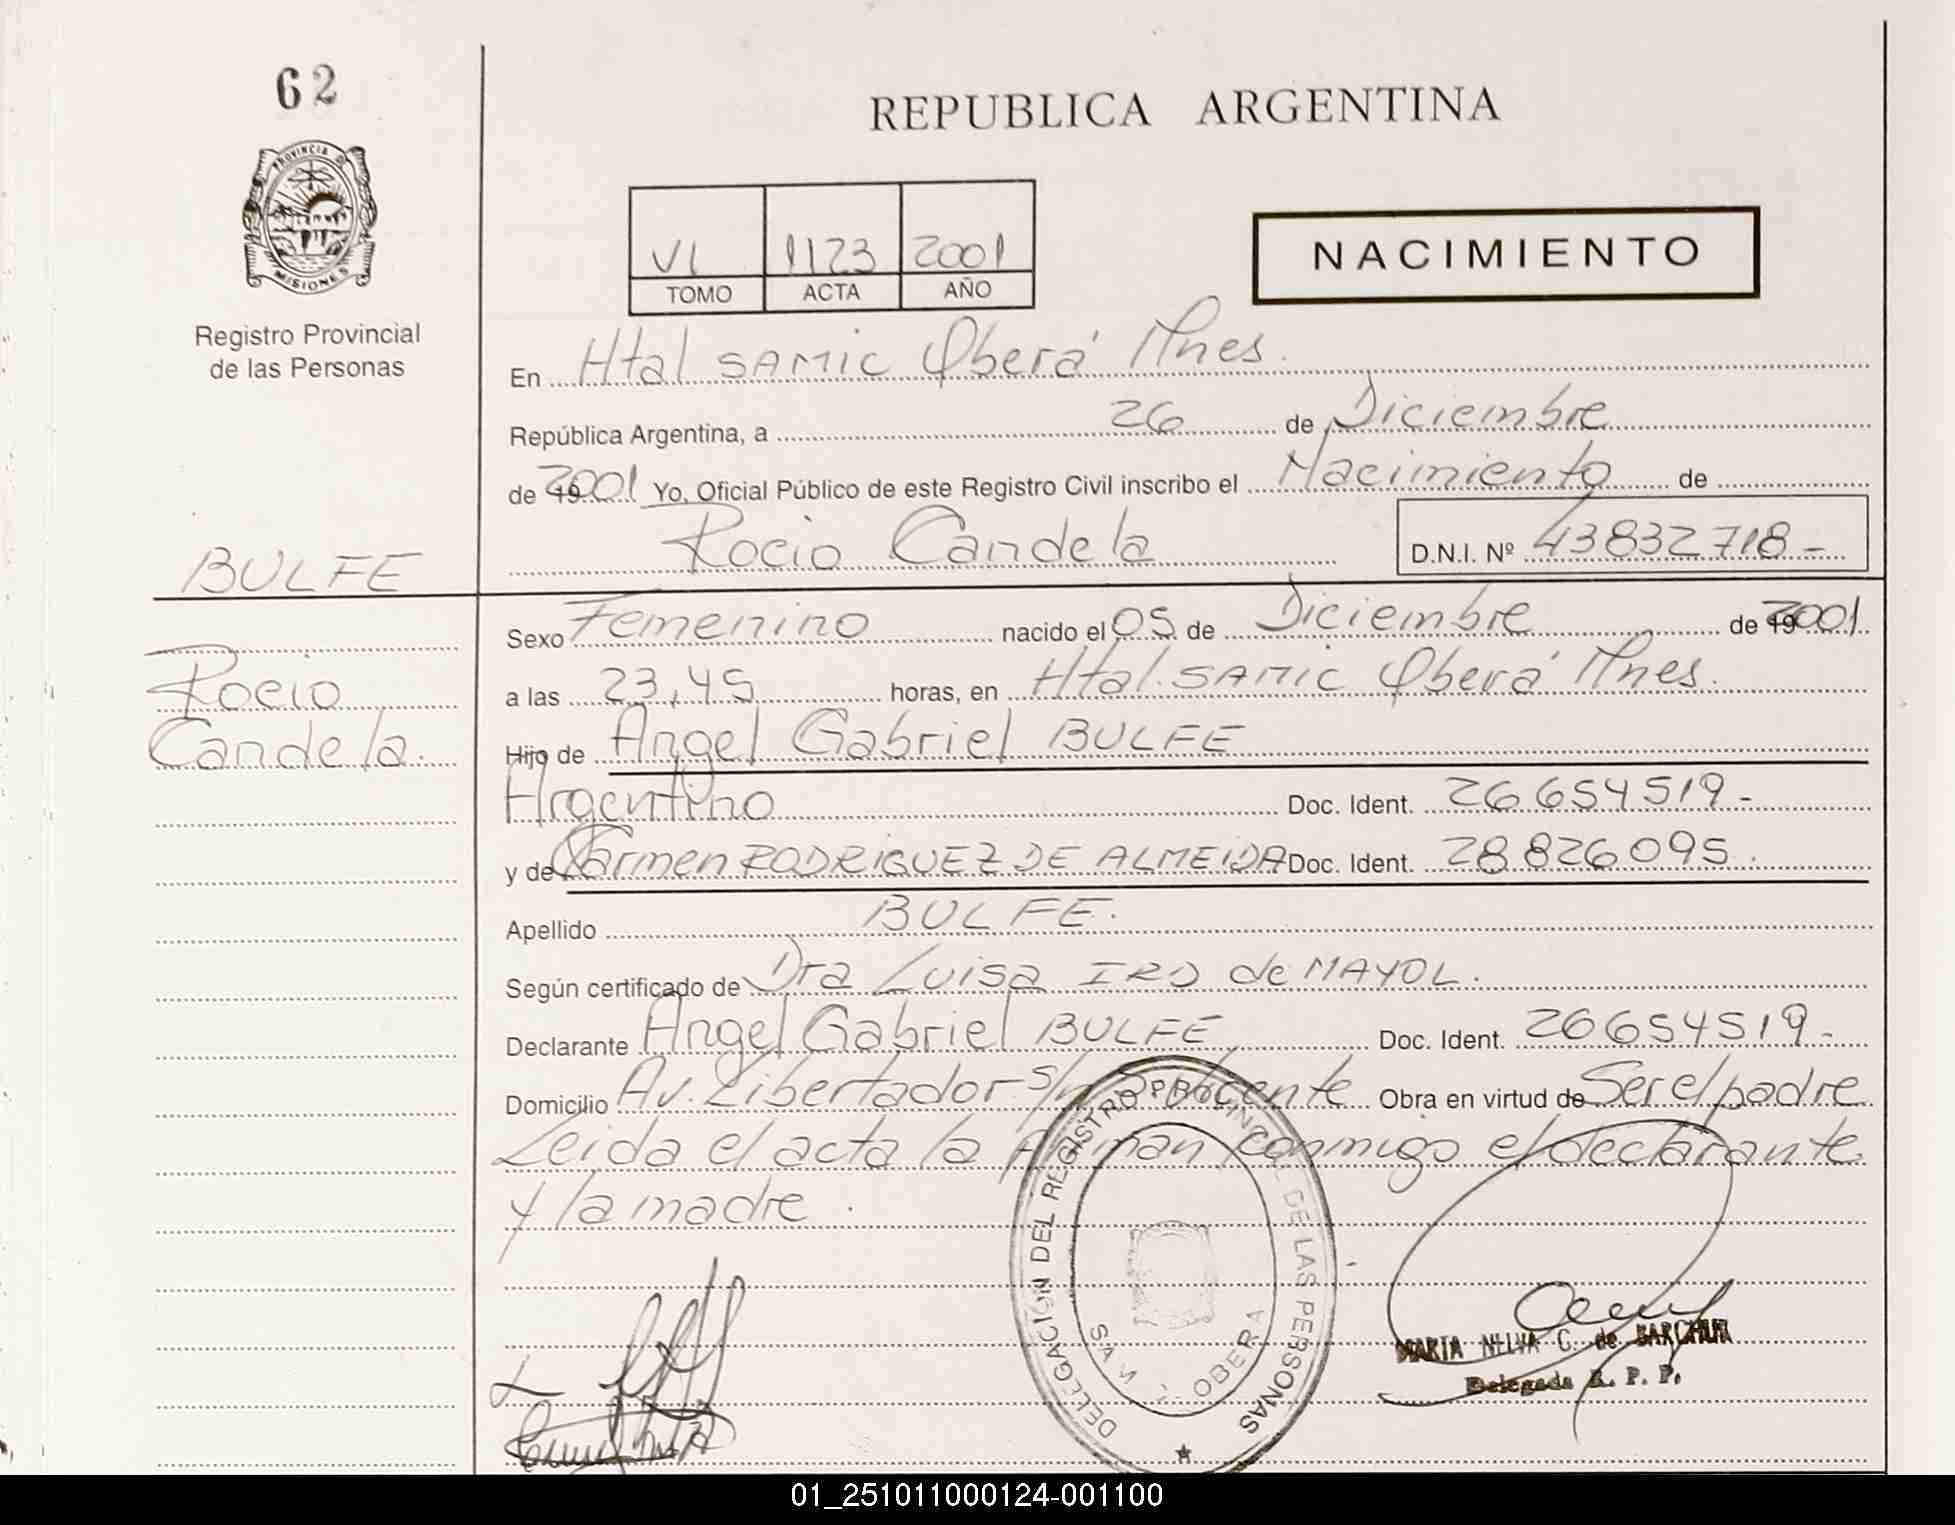 62
REPUBLICA ARGENTINA
PROVINCIA DE
MISIONES
Registro Provincial
de las Personas
VI 1123 2001
TOMO ACTA AÑO
NACIMIENTO
En Htal SAMIC Oberá Mnes.
República Argentina, a 26 de Diciembre
de 19 2001 Yo, Oficial Público de este Registro Civil inscribo el Nacimiento de
Rocio Candela D.N.I. Nº 43832718-
BULFE
Rocio
Candela.
Sexo Femenino nacido el 05 de Diciembre de 19 2001
a las 23,45 horas, en Htal. SAMIC Oberá Mnes.
Hijo de Angel Gabriel BULFE
Argentino Doc. Ident. 26654519-
y de Carmen RODRIGUEZ DE ALMEIDA Doc. Ident. 28.826.095.
Apellido BULFE.
Según certificado de Dra Luisa IRD de MAYOL.
Declarante Angel Gabriel BULFE Doc. Ident. 26654519-
Domicilio Av. Libertador s/n Obra en virtud de Ser el padre
Leida el acta la firman conmigo el declarante
y la madre.
DELEGACION DEL REGISTRO PROVINCIAL DE LAS PERSONAS
OBERA
MARTA NELVA C. de
Delegada R. P. P.
01_251011000124-001100